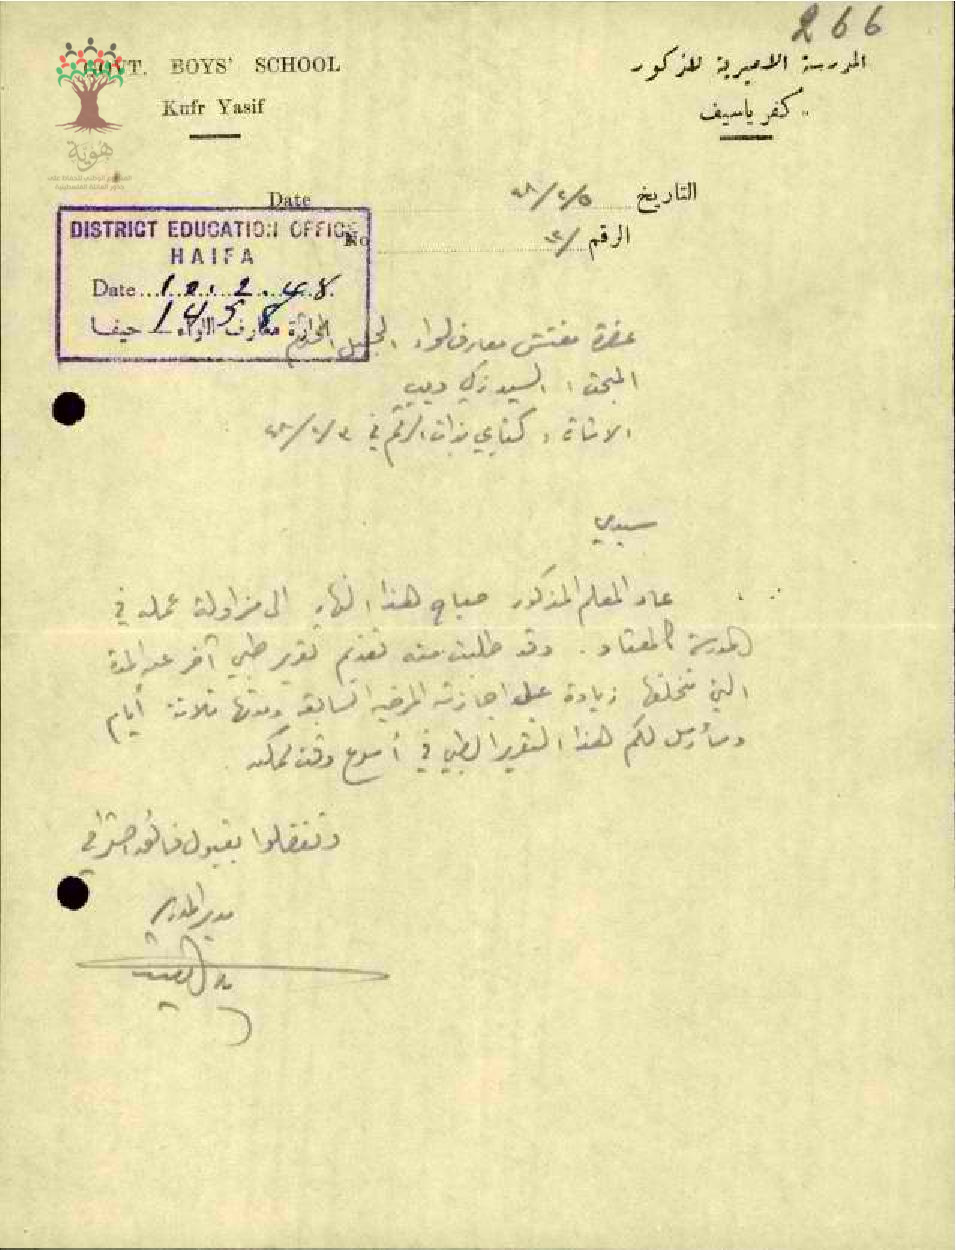 266
GOVT. BOYS' SCHOOL
Kufr Yasif
المدرسة الاميرية للذكور
كفر ياسيف
هوية
Date التاريخ ٤٨/٢/٥
No الرقم /٣
DISTRICT EDUCATION OFFICE
HAIFA
Date 10.2.48
1458
دائرة معارف اللواء - حيفا
حضرة مفتش معارف لواء الجليل المحترم
المبحث : السيد زكي ديب
الاشارة : كتابي بذات الرقم في ٤٨/٢/٣
سيدي
عاد المعلم المذكور صباح هذا النهار الى مزاولة عمله في
المدرسة كالمعتاد . وقد طلبت منه تقديم تقرير طبي آخر عن المدة
التي تخلفها زيادة على اجازته المرضية السابقة ومدتها ثلاثة أيام
وسأرسل لكم هذا التقرير الطبي في أسرع وقت ممكن .
وتفضلوا بقبول فائق احترامي
مدير المدرسة